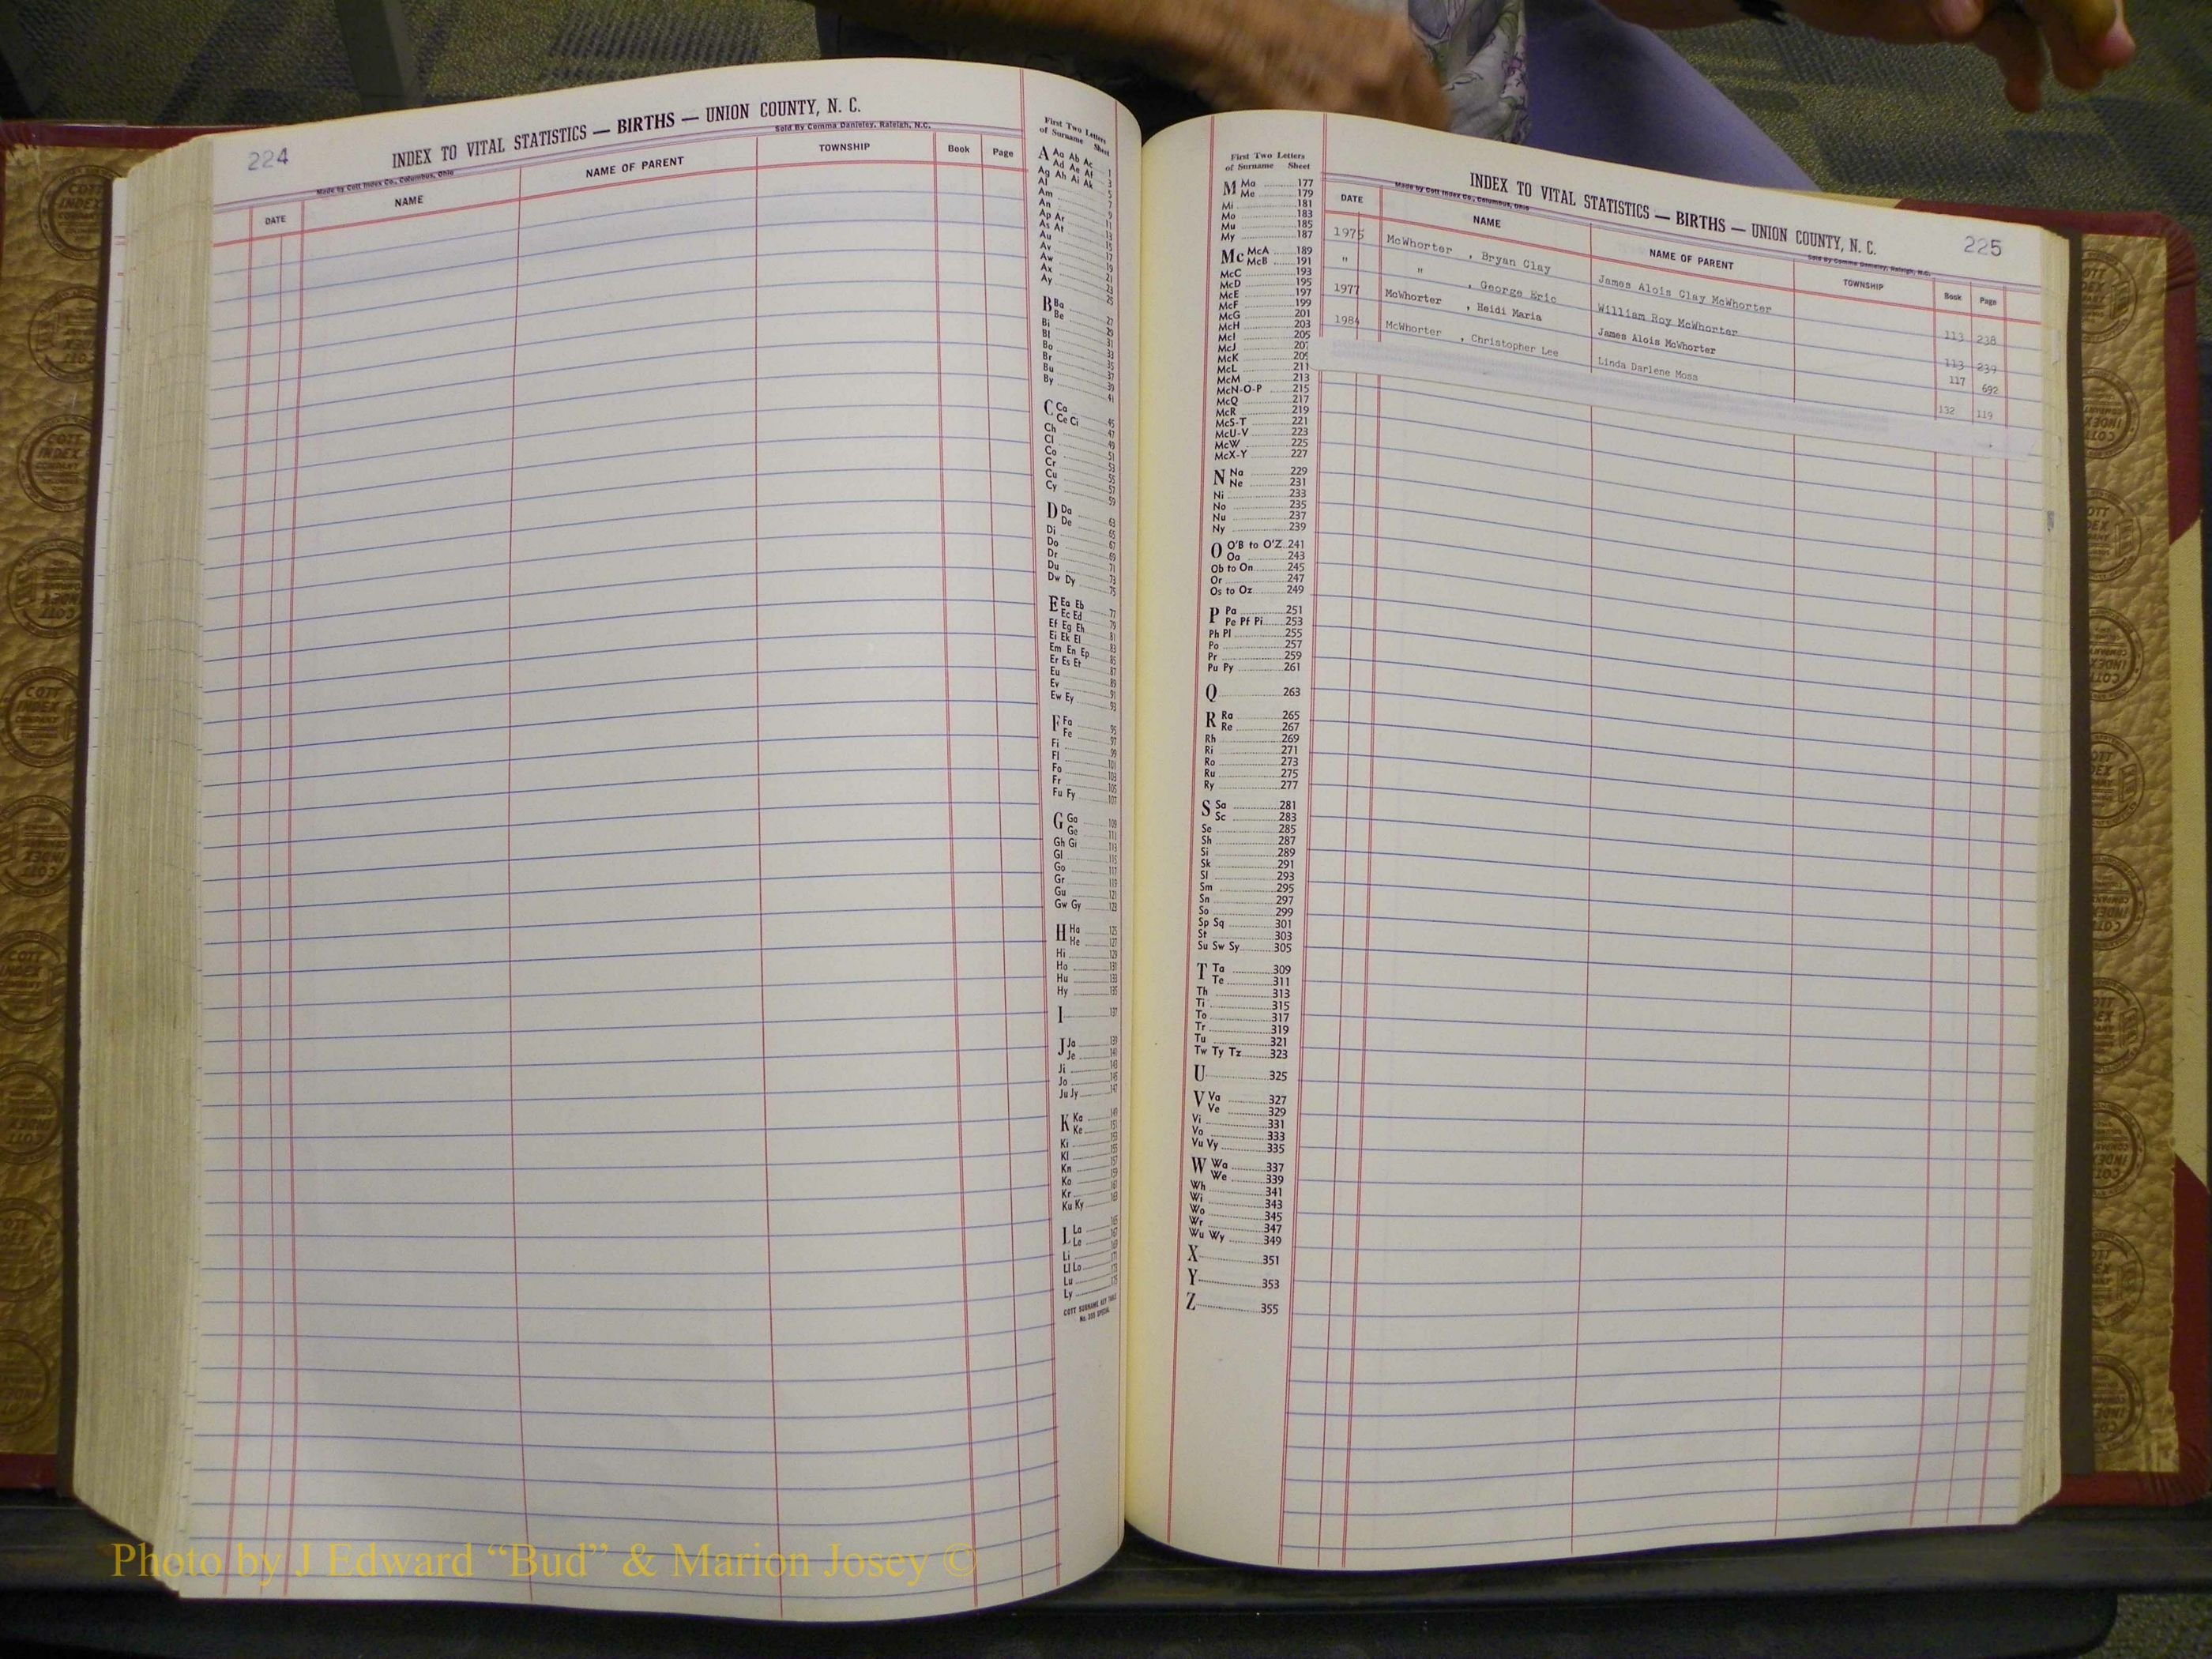 224
INDEX TO VITAL STATISTICS — BIRTHS — UNION COUNTY, N. C.
Made by Cott Index Co., Columbus, Ohio
Sold By Comma Danieley, Raleigh, N.C.
DATE NAME NAME OF PARENT TOWNSHIP Book Page
First Two Letters
of Surname Sheet
A Aa Ab Ac 1
Ad Ae Af 3
Ag Ah Ai Ak 5
Al 7
Am 9
An 11
Ap Ar 13
As At 15
Au 17
Av 19
Aw 21
Ax 23
Ay 25
B Ba 27
Be 29
Bi 31
Bl 33
Bo 35
Br 37
Bu 39
By 41
C Ca 45
Ce Ci 47
Ch 49
Cl 51
Co 53
Cr 55
Cu 57
Cy 59
D Da 63
De 65
Di 67
Do 69
Dr 71
Du 73
Dw Dy 75
E Ea Eb 77
Ec Ed 79
Ef Eg Eh 81
Ei Ek El 83
Em En Ep 85
Er Es Et 87
Eu 89
Ev 91
Ew Ey 93
F Fa 95
Fe 97
Fi 99
Fl 101
Fo 103
Fr 105
Fu Fy 107
G Ga 109
Ge 111
Gh Gi 113
Gl 115
Go 117
Gr 119
Gu 121
Gw Gy 123
H Ha 125
He 127
Hi 129
Ho 131
Hu 133
Hy 135
I 137
J Ja 139
Je 141
Ji 143
Jo 145
Ju Jy 147
K Ka 149
Ke 151
Ki 153
Kl 155
Kn 157
Ko 159
Kr 161
Ku Ky 163
L La 165
Le 167
Li 169
Ll Lo 171
Lu 173
Ly 175
COTT SURNAME KEY TABLE
First Two Letters
of Surname Sheet
M Ma 177
Me 179
Mi 181
Mo 183
Mu 185
My 187
Mc McA 189
McB 191
McC 193
McD 195
McE 197
McF 199
McG 201
McH 203
McI 205
McJ 207
McK 209
McL 211
McM 213
McN-O-P 215
McQ 217
McR 219
McS-T 221
McU-V 223
McW 225
McX-Y 227
N Na 229
Ne 231
Ni 233
No 235
Nu 237
Ny 239
O O'B to O'Z 241
Oa 243
Ob to On 245
Or 247
Os to Oz 249
P Pa 251
Pe Pf Pi 253
Ph Pl 255
Po 257
Pr 259
Pu Py 261
Q 263
R Ra 265
Re 267
Rh 269
Ri 271
Ro 273
Ru 275
Ry 277
S Sa 281
Sc 283
Se 285
Sh 287
Si 289
Sk 291
Sl 293
Sm 295
Sn 297
So 299
Sp Sq 301
St 303
Su Sw Sy 305
T Ta 309
Te 311
Th 313
Ti 315
To 317
Tr 319
Tu 321
Tw Ty Tz 323
U 325
V Va 327
Ve 329
Vi 331
Vo 333
Vu Vy 335
W Wa 337
We 339
Wh 341
Wi 343
Wo 345
Wr 347
Wu Wy 349
X 351
Y 353
Z 355
225
INDEX TO VITAL STATISTICS — BIRTHS — UNION COUNTY, N. C.
Made by Cott Index Co., Columbus, Ohio
Sold By Comma Danieley, Raleigh, N.C.
DATE NAME NAME OF PARENT TOWNSHIP Book Page
1975 McWhorter , Bryan Clay James Alois Clay McWhorter 113 238
" " , George Eric William Roy McWhorter 113 239
1977 McWhorter , Heidi Maria James Alois McWhorter 117 692
1984 McWhorter , Christopher Lee Linda Darlene Moss 132 119
Photo by J Edward “Bud” & Marion Josey ©